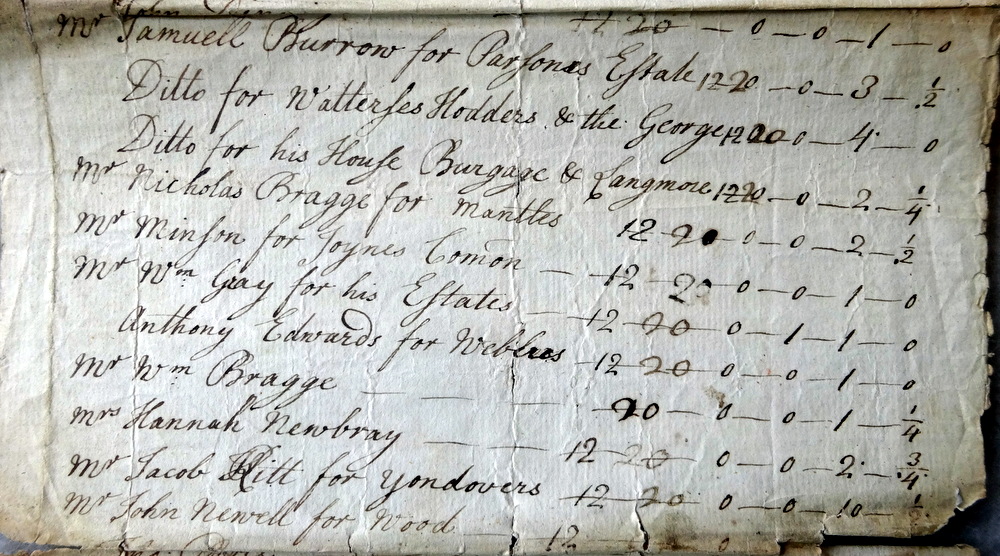 12 20 — 0 — 0 — 1 — 0
Mr Samuell Burrow for Parsones Estate 12 20 — 0 — 3 — 1/2
Ditto for Watterses Hodders & the George 12 20 0 — 4 — 0
Ditto for his House Burgage & Langmore 12 20 — 0 — 2 — 1/4
Mr Nicholas Bragge for Mantles 12 20 0 — 0 — 2 — 1/2
Mr Minson for Joynes Comon — 12 20 0 — 0 — 1 — 0
Mr Wm Gray for his Estates — 12 20 0 — 1 — 1 — 0
Anthony Edwards for Webbers — 12 20 0 — 0 — 1 — 0
Mr Wm Bragge — — — — 20 — 0 — 0 — 1 — 1/4
Mrs Hannah Newbray — — — 12 20 0 — 0 — 2 — 3/4
Mr Jacob Hitt for Yondovers 12 20 0 — 0 — 10 —
Mr John Newell for Wood 12 0